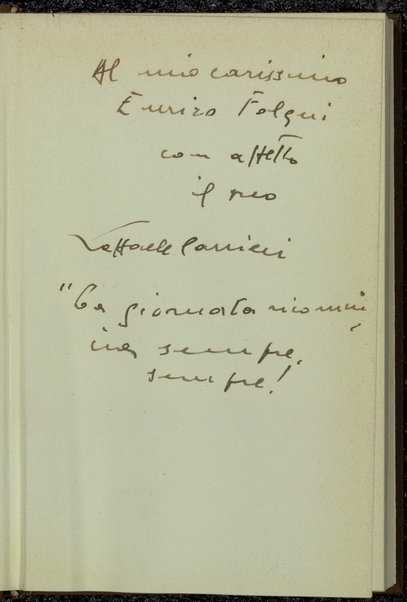 Al mio carissimo
Enrico Falqui
con affetto
il suo
Raffaele Carrieri
"La giornata ricomin
cia sempre,
sempre!